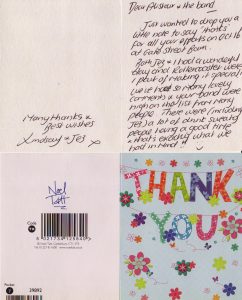 Dear Alistair & the band
Just wanted to drop you a
little note to say 'thanks'
for all your efforts on Oct 16
at East Street Barn.
Both Jez & I had a wonderful
day and Rollercoaster were
a part of making it special.
we've had so many lovely
comments & your band were
high on the list from many
people. There were (including
Jez) a lot of drunk sweaty
people having a good time
& that's exactly what we
had in mind!
Many thanks &
Best wishes
Lindsay & Jez
x
Noel
Tatt
Code
THANK
YOU